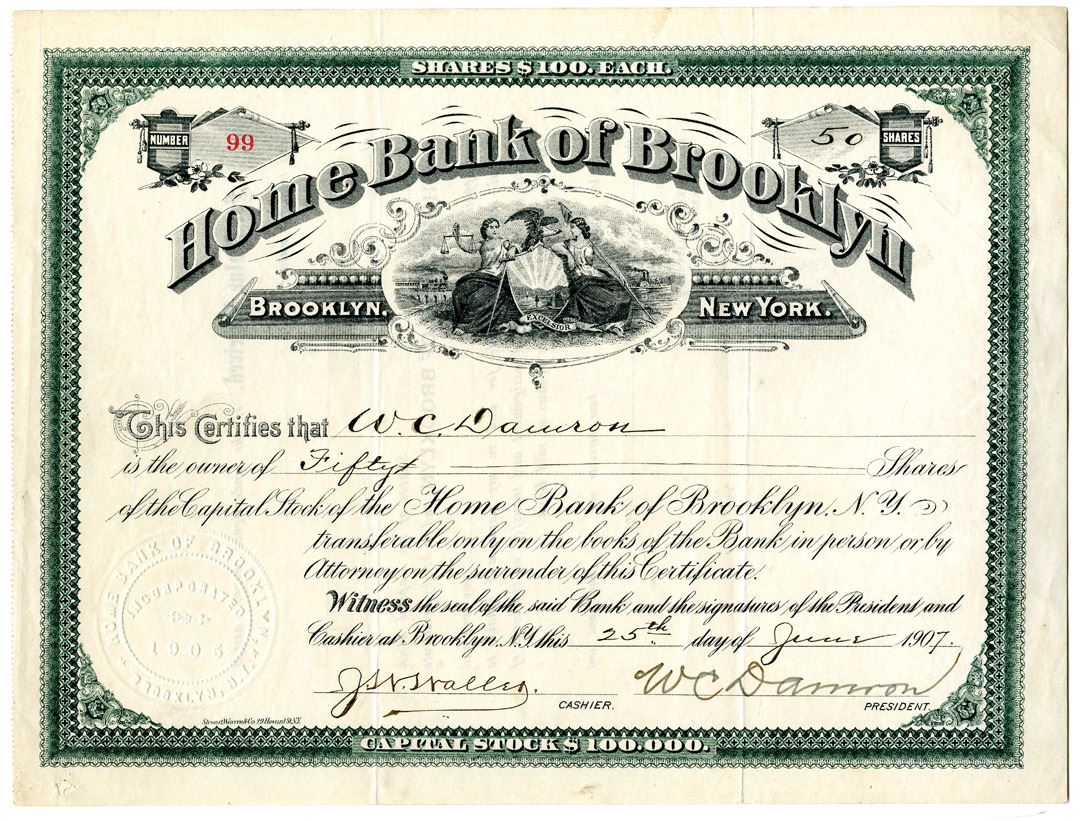 SHARES $100. EACH.
NUMBER 99
50 SHARES
Home Bank of Brooklyn
BROOKLYN, NEW YORK.
EXCELSIOR
This Certifies that W. C. Damron
is the owner of Fifty Shares
of the Capital Stock of the Home Bank of Brooklyn, N.Y.
transferable only on the books of the Bank in person or by
Attorney on the surrender of this Certificate.
Witness the seal of the said Bank and the signatures of the President and
Cashier at Brooklyn, N.Y. this 25th day of June 1907.
HOME BANK OF BROOKLYN
INCORPORATED
1905
BROOKLYN, N.Y.
W C Damron
CASHIER.
PRESIDENT.
Stewart Warren & Co. 29 Howard St. N.Y.
CAPITAL STOCK $100.000.